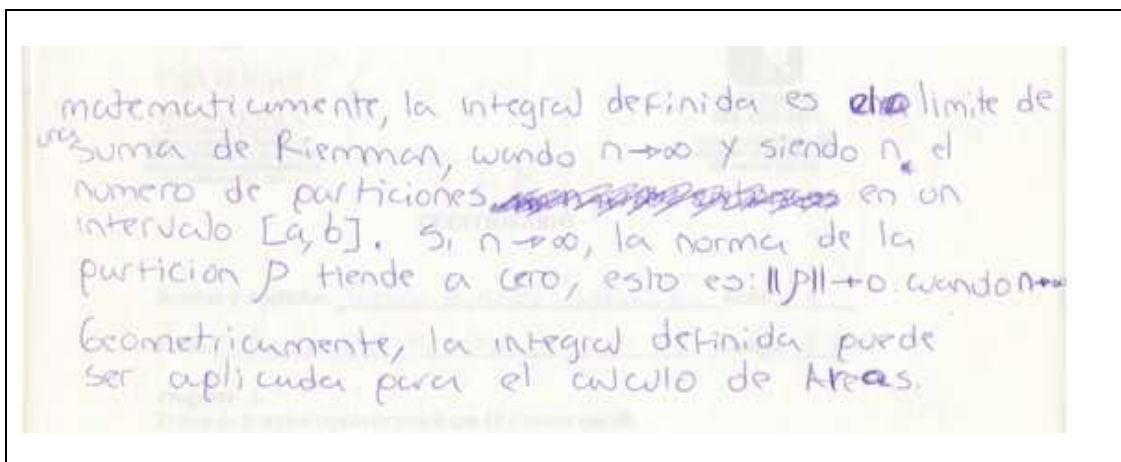 matematicamente, la integral definida es el limite de
una suma de Riemman, cuando n→∞ y siendo n, el
numero de particiones en un
intervalo [a,b]. Si n→∞, la norma de la
particion P tiende a cero, esto es: ||P||→0 cuando n→∞
Geometricamente, la integral definida puede
ser aplicada para el calculo de Areas.